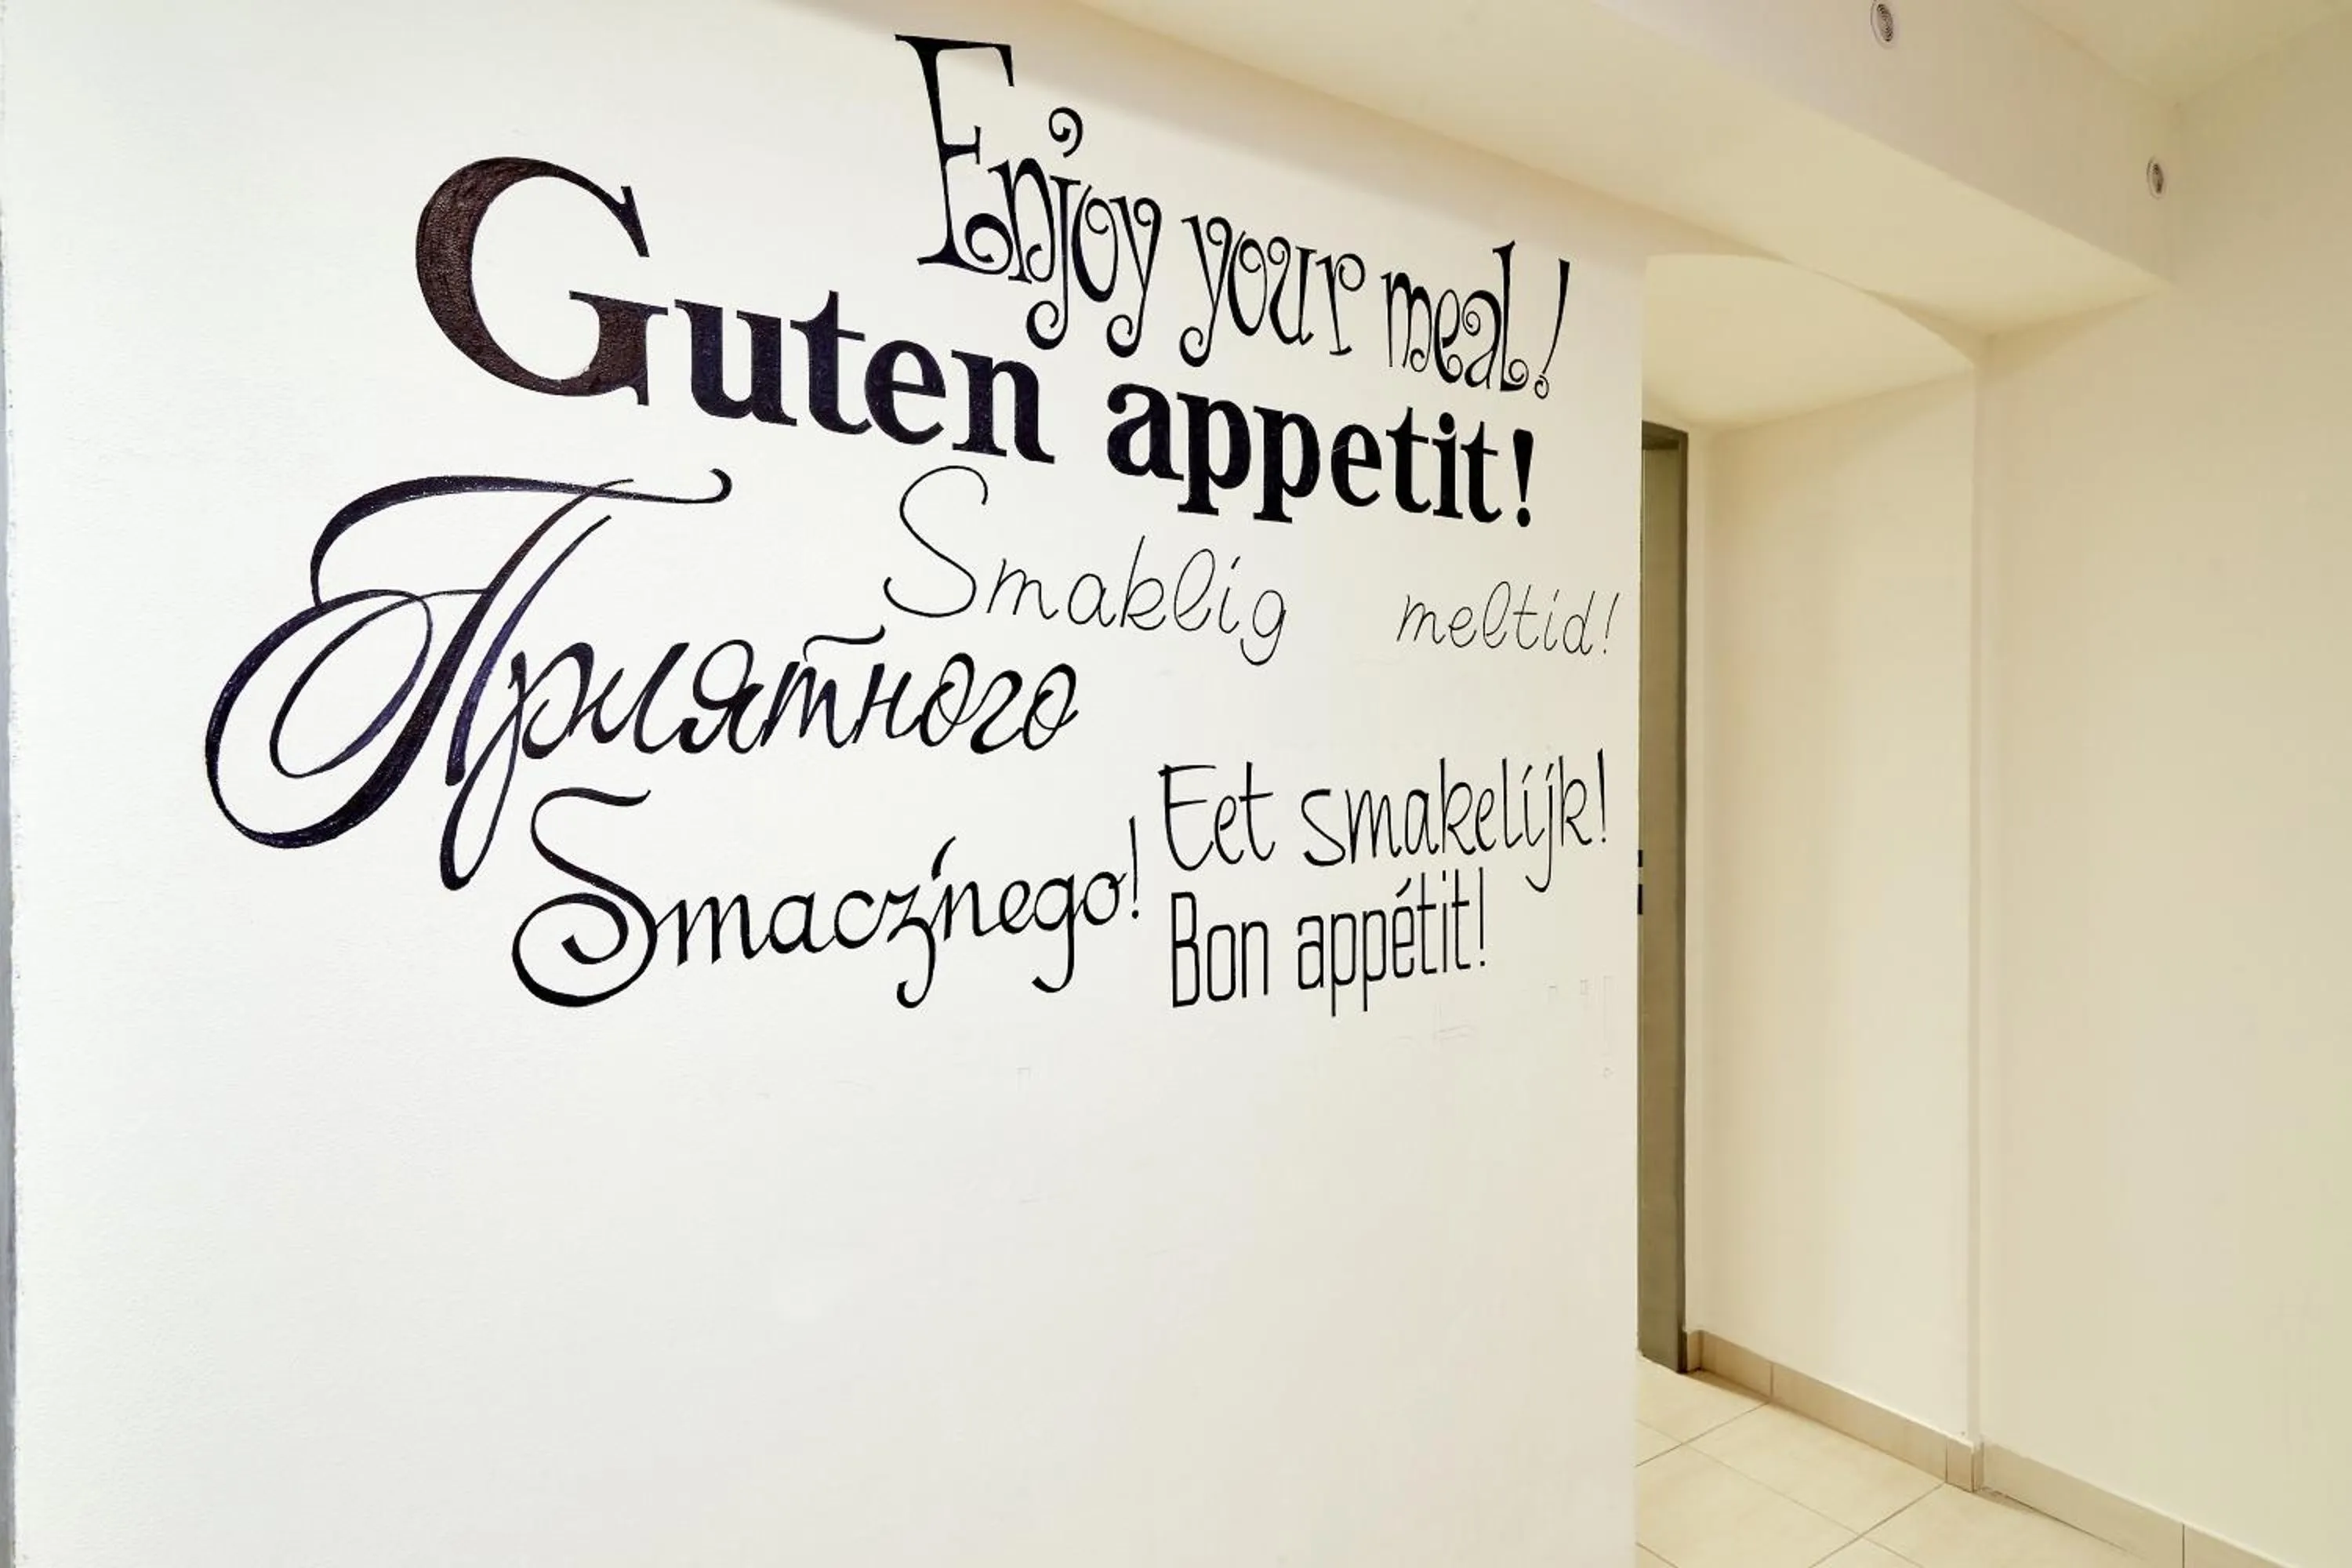 Enjoy your meal!
Guten appetit!
Smaklig meltid!
Приятного
Eet smakelijk!
Smacznego!
Bon appétit!